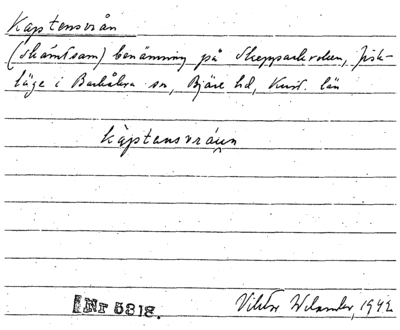 Kaptensvrån
(Skämtsam) benämning på Skepparkroken, fisk-
läge i Barkåkra sn, Bjäre hd, Krist. län
kàptansvráun
Nr 5318.
Viktor Wilander, 1942